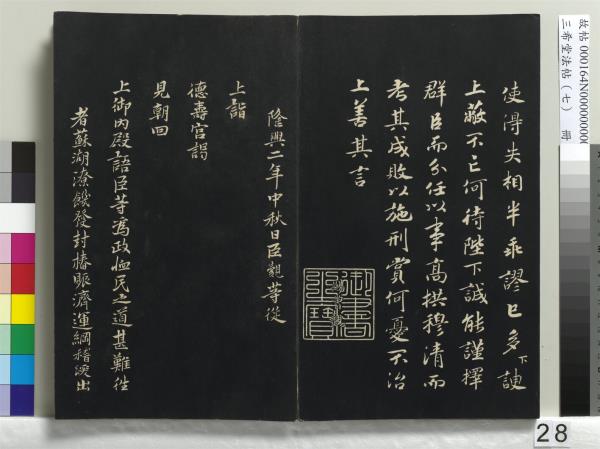 使得失相半乖謬已多下諛
上蔽不亡何待陛下誠能謹擇
群臣而分任以事高拱穆清而
考其成敗以施刑賞何憂不治
上善其言
御書之寶
隆興二年中秋日臣觀等從
上詣
德壽宮謁
見朝回
上御內殿語臣等為政恤民之道甚難從
者蘇湖潦饑發封樁賑濟運綱稽
出
故帖 000164N000000000
三希堂法帖（七） 冊
28